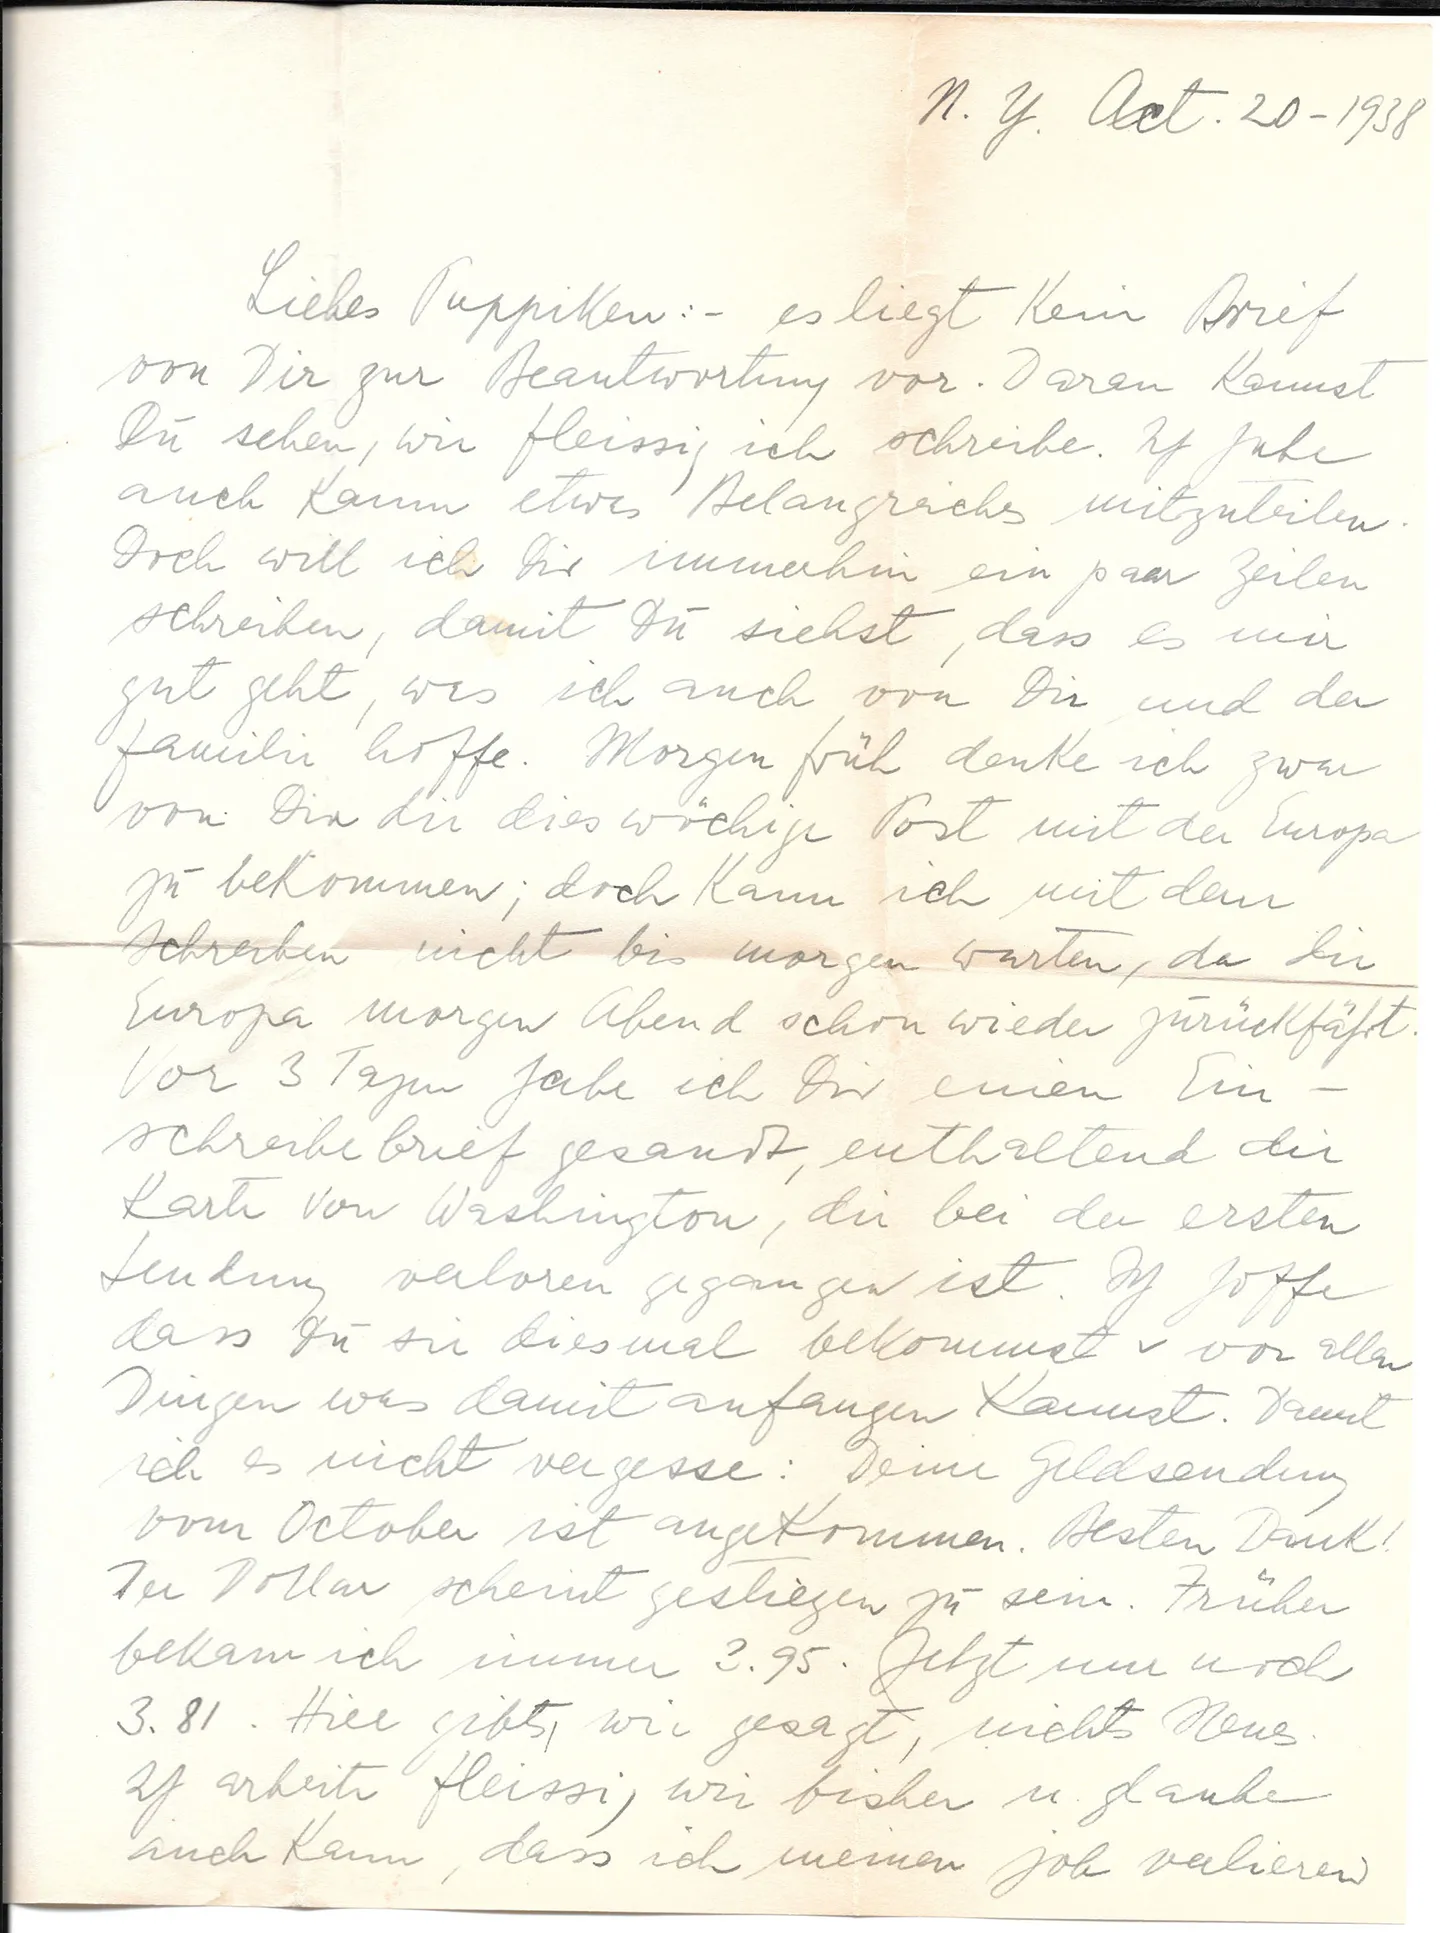 N. Y. Oct. 20 - 1938
Liebes Puppiken :- es liegt kein Brief
von Dir zur Beantwortung vor. Daran kannst
Dū sehen, wie fleissig ich schreibe. Ich habe
auch kaum etwas Belangreiches mitzuteilen.
Doch will ich Dir immerhin ein paar Zeilen
schreiben, damit Dū siehst, dass es mir
gut geht, was ich auch von Dir und der
Familie hoffe. Morgen früh denke ich zwar
von Dir die dieswöchige Post mit der Europa
zū bekommen; doch kann ich mit dem
Schreiben nicht bis morgen warten, da die
Europa morgen Abend schon wieder zūrückfährt.
Vor 3 Tagen habe ich Dir einen Ein -
schreibebrief gesandt, enthaltend die
Karte von Washington, die bei der ersten
Sendung verloren gegangen ist. Ich hoffe
dass Dū sie diesmal bekommst u vor allen
Dingen was damit anfangen kannst. Damit
ich es nicht vergesse: Deine Geldsendung
vom October ist angekommen. Besten Dank!
Der Dollar scheint gestiegen zū sein. Früher
bekam ich immer 3.95. Jetzt nur noch
3.81. Hier gibts, wie gesagt, nichts Neues.
Ich arbeite fleissig wie bisher u. glaube
auch kaum, dass ich meinen job verlieren